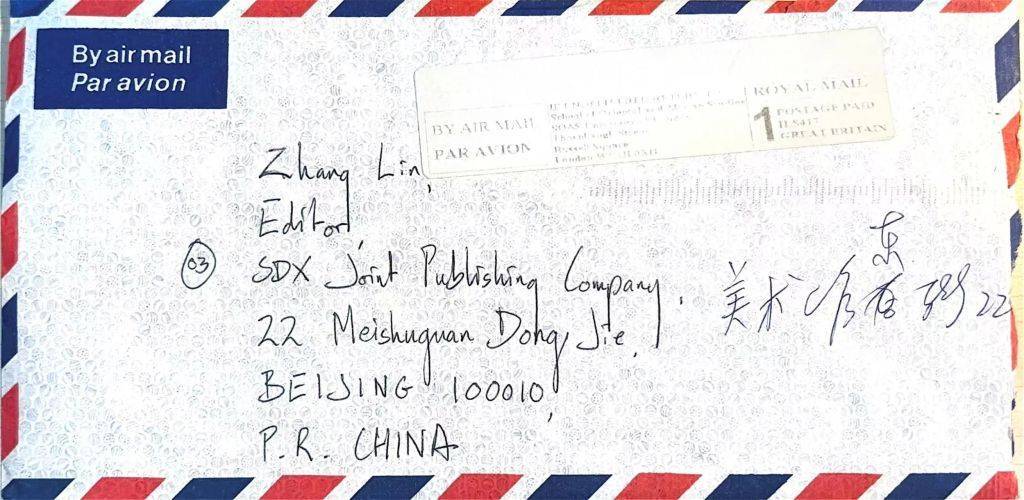 By air mail
Par avion
BY AIR MAIL
PAR AVION
School of Oriental and African Studies
Russell Square
London
ROYAL MAIL
1
POSTAGE PAID
GREAT BRITAIN
Zhang Lin,
Editor,
03
SDX Joint Publishing Company,
22 Meishuguan Dong Jie,
BEIJING 100010,
P.R. CHINA
东
美术馆 22